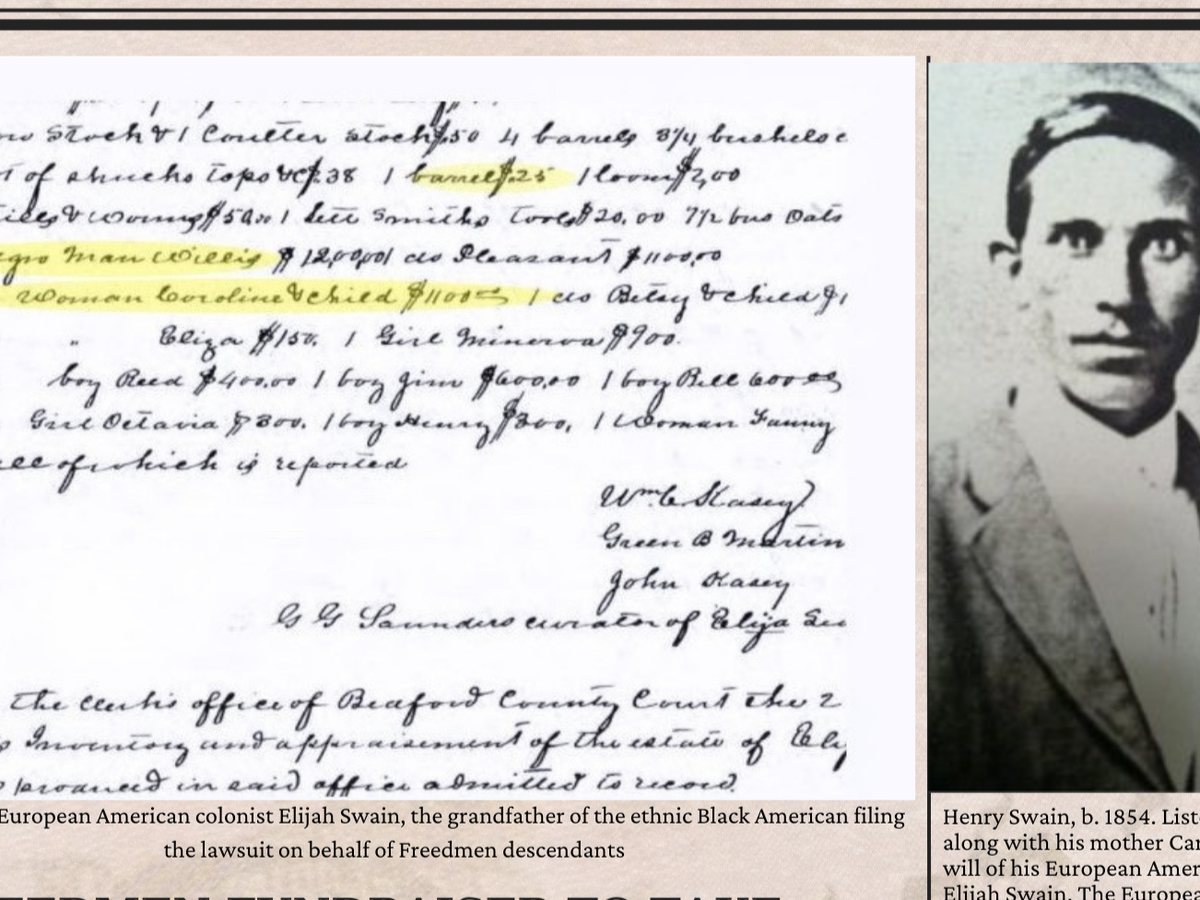 Stock & 1 Coulter Stock $.50 4 barrels 3/4 bushels
of shucks tops &c $.38 1 barrel $.25 1 loom $2,00
1 sett Smiths Tools $20.00 7 1/2 bus Oats
Man Willis $1200,00 1 do Pleasant $1100,00
Woman Caroline & child $1100 1 do Betsy & child $1
" Eliza $150. 1 Girl Minerva $900.
boy Reed $400.00 1 boy Jim $600,00 1 boy Bill 600
Girl Octavia $300. 1 boy Henry $300, 1 Woman Fanny
of which is reported
Wm C. Kasey
Green B Martin
John Kasey
G G Saunders curator of Elija
The clerks office of Bedford County Court the 2
Inventory and appraisement of the estate of
produced in said office admitted to record.
European American colonist Elijah Swain, the grandfather of the ethnic Black American filing
the lawsuit on behalf of Freedmen descendants
Henry Swain, b. 1854.
along with his mother
will of his European
Elijah Swain. The
FUNDRAISER TO TAKE